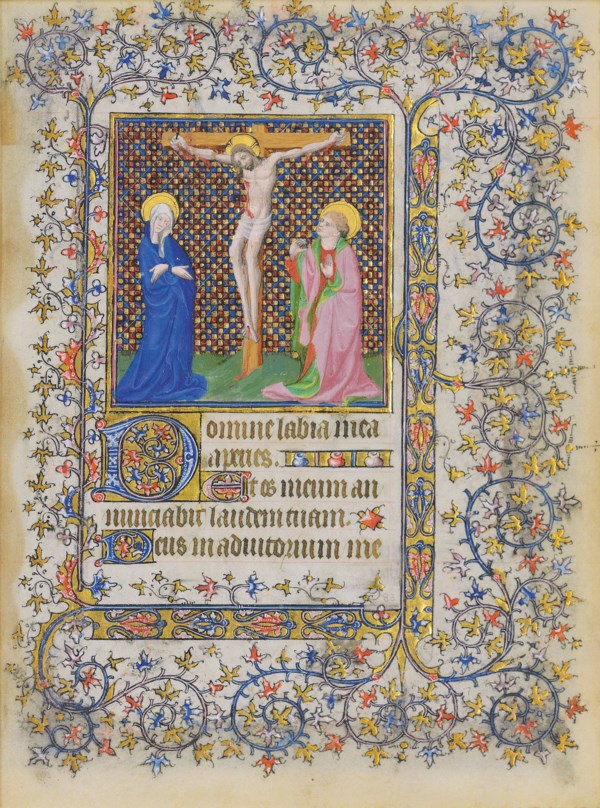 Domine labia mea
aperies.
Et os meum an
nunciabit laudem tuam.
Deus in adiutorium me